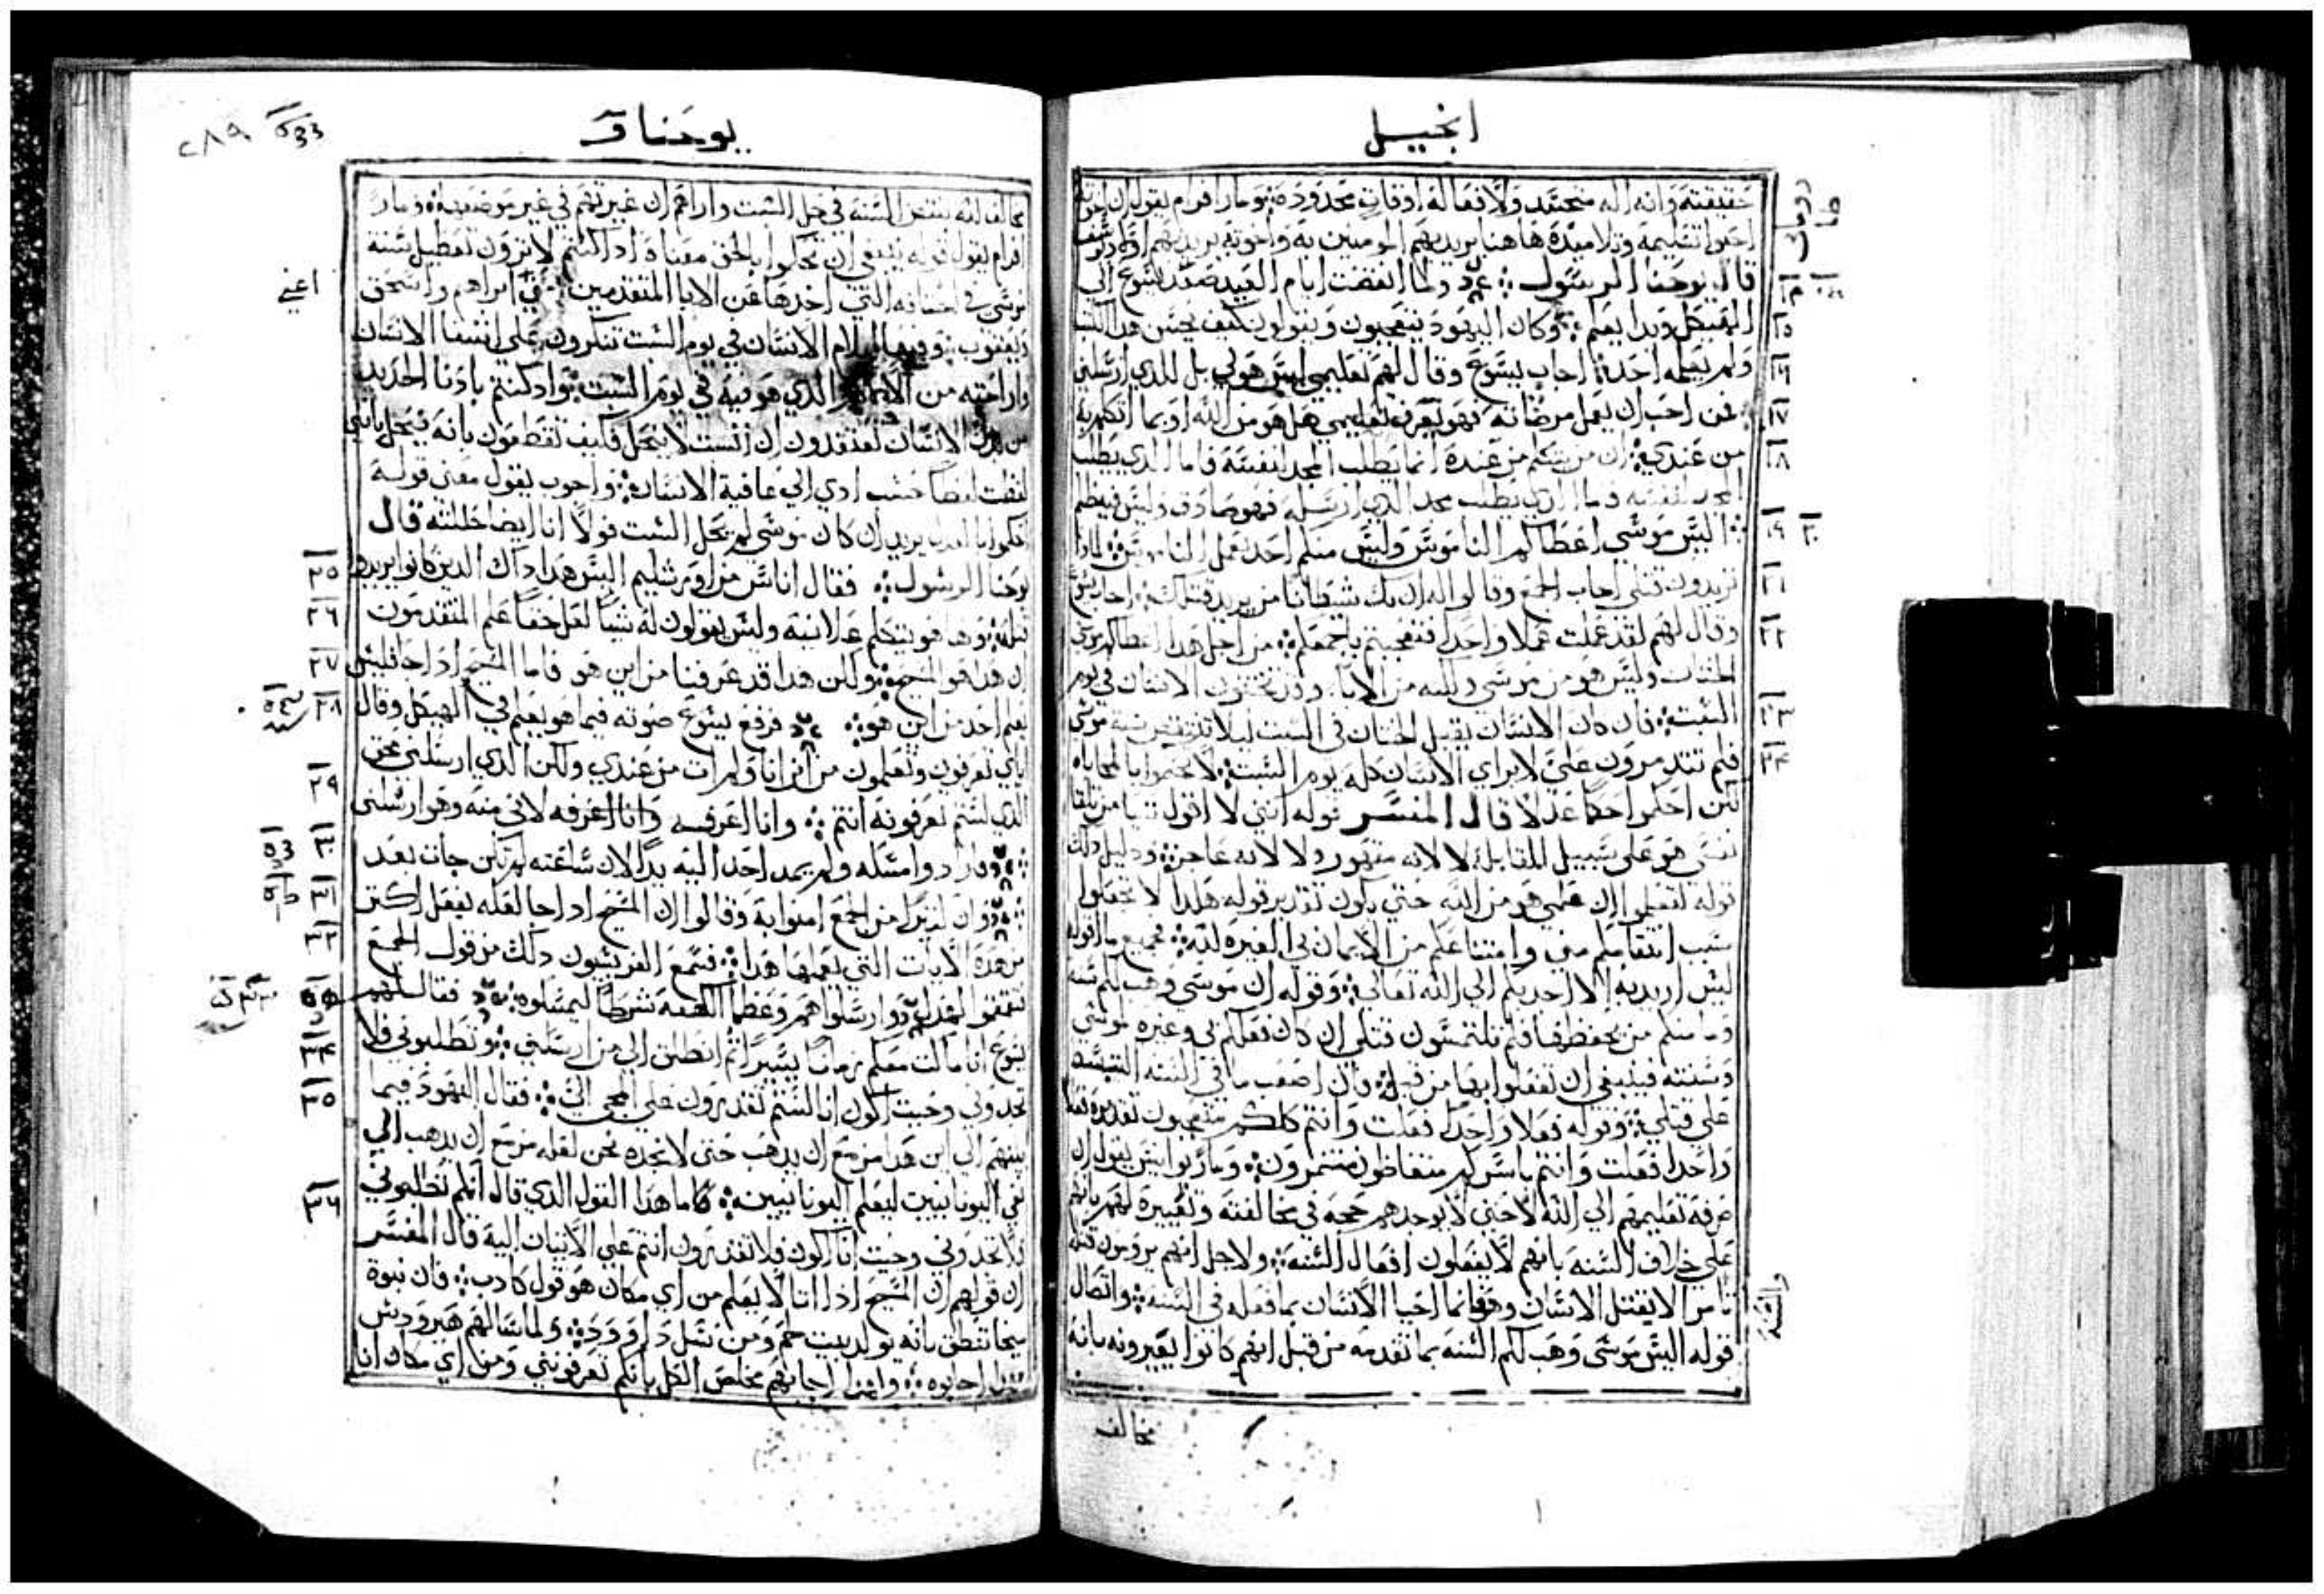 انجيل
حقيقته وانه اله متجسد ولافعاله اوقات محدوده ومار افرام يقول ان
تعليمه وتلاميذه هاهنا يريد بهم المومنين به واخوته يريد بهم
قال يوحنا الرسول ولما انتصفت ايام العيد صعد يسوع الي
الهيكل وبدا يعلم وكان اليهود يتعجبون ويقولون كيف يحسن هذا الكتاب
ولم يعلمه احد اجاب يسوع وقال لهم تعليمي ليس هو لي بل للذي ارسلني
فمن احب ان يعمل مرضاته فهو يعرف تعليمي هل هو من الله او بما اتكلم به
من عندي ان من يتكلم من عنده انما يطلب المجد لنفسه فاما الذي يطلب
المجد لنفسه فاما الذي يطلب مجد الذي ارسله فهو صادق وليس فيه ظلم
اليس موسي اعطاكم الناموس وليس منكم احد يعمل الناموس لماذا
تريدون قتلي اجاب الجمع وقالوا له ان بك شيطانا من يريد قتلك اجاب يسوع
وقال لهم لقد عملت عملا واحدا فتعجبتم باجمعكم من اجل هذا اعطاكم موسي
الختان وليس هو من موسي ولكنه من الابا وقد تختنون الانسان في يوم
السبت فان كان الانسان يقبل الختان في السبت ليلا تنتقض سنة موسي
فلم تتذمرون علي لابراي الانسان كله يوم السبت لا تحكموا بالمحاباه
لكن احكموا حكما عدلا قال المفسر قوله انني لا اقول شيا من تلقا
نفسي هو علي سبيل المقابلة لا لانه مقهور ولا لانه عاجز ودليل ذلك
قوله لتعلموا ان علمي هو من الله حتي يكون تقدير قوله هكذا لا تجعلوا
سبب انتقامكم مني وامتناعكم من الايمان بي الغيره لله فجميع ما اقوله
ليس اريد به الا اجذبكم الي الله تعالي وقوله ان موسي وهب لكم سنه
وما منكم من يحفظها فلم تلتمسون قتلي ان كان فعلكم بي وغيره لموسي
وسنته فينبغي ان تفعلوا بها من قبل فان اصعب ما في السنه
علي قتلي وقوله فعلا واحدا فعلت وانتم كلكم متعجبون تقديره فعلا
واحدا فعلت وانتم باسركم متغاظون متنمرون ومار يوانيس يقول ان
صرفه تعليمهم الي الله لا حتي لا يوجدهم حجه في مخالفته وتغييره لهم بانهم
علي خلاف السنه بانهم لا يفعلون افعال السنه ولاجل انهم يرومون قتله
تامر الا يقتل الانسان وهو انما احيا الانسان بما فعله في السنه واتصال
قوله اليس موسي وهب لكم السنه بما تقدمه من قبل انهم كانوا يعيرونه بانه
والسنه
١٥
١٦
١٧
١٨
١٩
٢٠
٢١
٢٢
٢٣
٢٤
مخالف
يوحنا
٢٨٩
مخالف لله بنقض السنه في حل السبت واراهم ان غيرتهم في غير موضعها ومار
افرام يقول قوله ينبغي ان تحكموا بالحق معناه اذا كنتم لا ترون تعطيل سنة
موسي في التي اخذها عن الابا المتقدمين ابراهيم واسحق
اعني
ويعقوب الام الانسان في يوم السبت تنكرون علي انسفا الانسان
واراحته من الذي هو فيه في يوم السبت واذ كنتم باذنا الحديد
من بدن الانسان تعتقدون ان السبت لا ينحل فكيف تقطعون بانه ينحل بانني
لفظت لفظا حسب ادي الي عافية الانسان واخرون يقول معني قوله
احكموا يريد ان كان موسي لم يحل السبت فولا انا ايضا حللته قال
يوحنا الرسول فقال اناس من اورشليم اليس هذا ذاك الذين كانوا يريدوا
قتله وها هو يتكلم علانية وليس يقولون له شيا لعل حقا علم المتقدمون
ان هذا هو المسيح ولكن هذا قد عرفنا من اين هو فاما المسيح اذا جا فليس
يعلم احد من اين هو فرفع يسوع صوته فيما هو يعلم في الهيكل وقال
اياي تعرفون وتعلمون من اين انا ولم ات من عندي ولكن الذي ارسلني محق
الذي لستم تعرفونه انتم وانا اعرفه وانا اعرفه لاني منه وهو ارسلني
فارادوا مسكه ولم يمد احد اليه يدا لان ساعته لم تكن جات بعد
وان كثيرا من الجمع امنوا به وقالوا ان المسيح اذا جا لعله يفعل اكثر
من هذه الايات التي يعملها هذا فسمع الفريسيون ذلك من قول الجمع
فارسلوا هم وعظما الكهنه شرطا ليمسكوه فقال لهم
يسوع انا ماكث معكم زمانا يسيرا ثم انطلق الي من ارسلني وتطلبوني فلا
تجدوني وحيث اكون انا لستم تقدرون علي المجي الي فقال اليهود فيما
بينهم الي اين هذا مزمع ان يذهب حتي لا نجده نحن لعله مزمع ان يذهب الي
نفي اليونانيين ليعلم اليونانيين فما هذا القول الذي قال انكم تطلبوني
فلا تجدوني وحيث انا اكون فلا تقدرون انتم علي الاتيان اليه قال المفسر
ان قولهم ان المسيح اذا اتا لا يعلم من اي مكان هو قول كاذب فان نبوة
ميخا تنطق بانه يولد ببيت لحم ومن نسل داوود ولما سالهم هيرودس
اجابوه وايضا اجابهم مخلص الكل بانكم تعرفونني ومن اي مكان انا
٢٥
٢٦
٢٧
٢٨
٢٩
٣٠
٣١
٣٢
٣٤
٣٥
٣٦